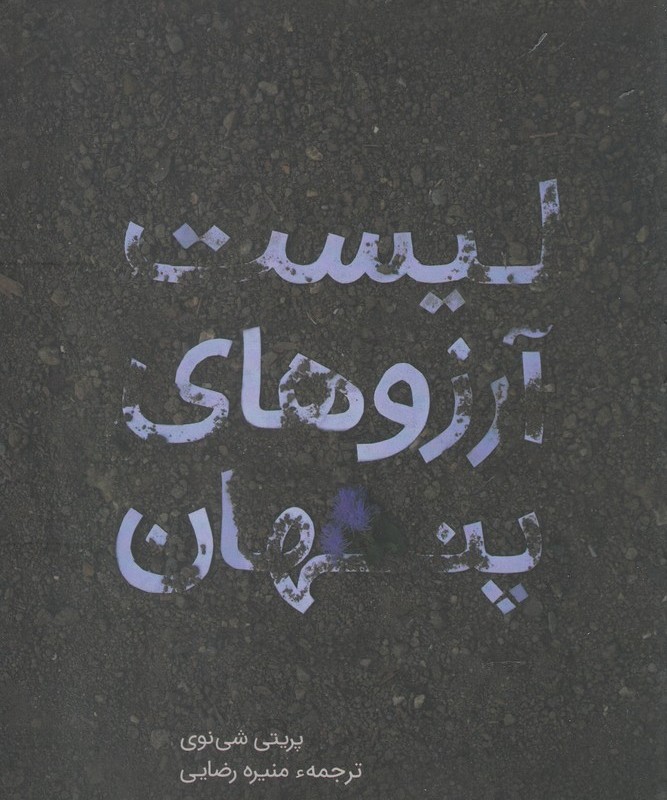 لیست
آرزوهای
پنهان
پریتی شی‌نوی
ترجمهء منیره رضایی